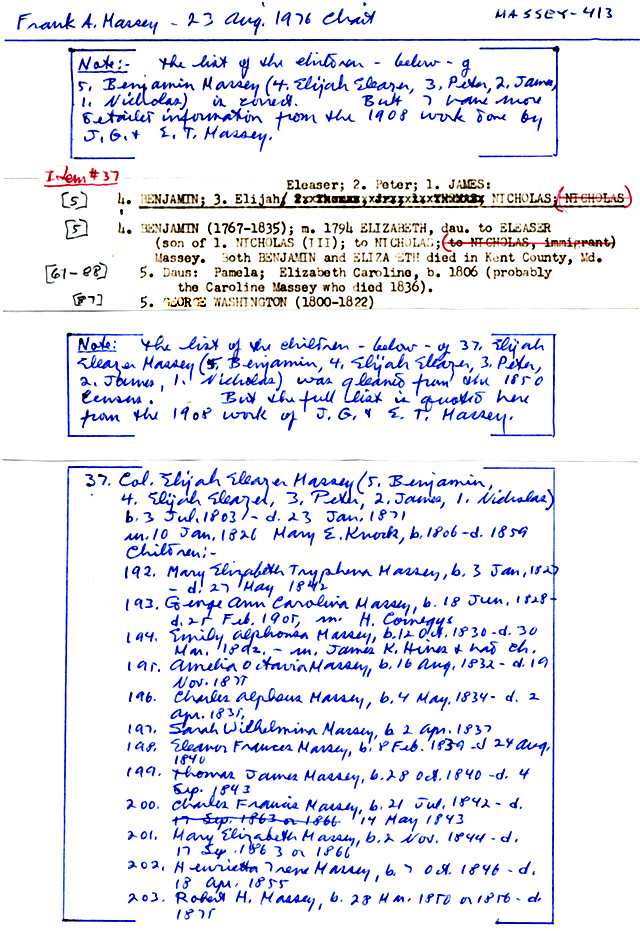 Frank A. Massey - 23 Aug. 1976 Chart
MASSEY-413
Note:- the list of the children - below - of
5. Benjamin Massey (4. Elijah Eleazer, 3. Peter, 2. James,
1. Nicholas) is correct. But I have more
detailed information from the 1908 work done by
J.G. & E.T. Massey.
Item #37
Eleaser; 2. Peter; 1. JAMES:
[5] 4. BENJAMIN; 3. Elijah NICHOLAS; (NICHOLAS)
[5] 4. BENJAMIN (1767-1835); m. 1794 ELIZABETH, dau. to ELEASER
(son of 1. NICHOLAS (III); to NICHOLAS; (to NICHOLAS, immigrant)
Massey. Both BENJAMIN and ELIZABETH died in Kent County, Md.
[61-88] 5. Daus: Pamela; Elizabeth Caroline, b. 1806 (probably
the Caroline Massey who died 1836).
[87] 5. GEORGE WASHINGTON (1800-1822)
Note: the list of the children - below - of 37. Elijah
Eleazer Massey (5. Benjamin, 4. Elijah Eleazer, 3. Peter,
2. James, 1. Nicholas) was gleaned from the 1850
Census. But the full list is quoted here
from the 1908 work of J.G. & E.T. Massey.
37. Col. Elijah Eleazer Massey (5. Benjamin,
4. Elijah Eleazer, 3. Peter, 2. James, 1. Nicholas)
b. 3 Jul. 1803 - d. 23 Jan. 1871
m. 10 Jan. 1826 Mary E. Knock, b. 1806 - d. 1859
Children:-
192. Mary Elizabeth Tryphena Massey, b. 3 Jan. 1827
- d. 27 May 1842
193. George Ann Carolina Massey, b. 18 Jun. 1828 -
d. 25 Feb. 1905, m. H. Comegys
194. Emily Alphonsa Massey, b. 12 Oct. 1830 - d. 30
Mar. 1892, - m. James K. Hines & had ch.
195. Amelia Octavia Massey, b. 16 Aug. 1832 - d. 19
Nov. 1875
196. Charles Alpheus Massey, b. 4 May. 1834 - d. 2
Apr. 1835,
197. Sarah Wilhelmina Massey, b. 2 Apr. 1837
198. Eleanor Frances Massey, b. 8 Feb. 1839 - d 24 Aug.
1840
199. Thomas James Massey, b. 28 Oct. 1840 - d. 4
Sep. 1843
200. Charles Francis Massey, b. 21 Jul. 1842 - d.
17 Sep. 1863 or 1866 14 May 1843
201. Mary Elizabeth Massey, b. 2 Nov. 1844 - d.
17 Sep. 1863 or 1866
202. Henrietta Irene Massey, b. 7 Oct. 1846 - d.
18 Apr. 1855
203. Robert H. Massey, b. 28 Mar. 1850 or 1856 - d.
1875